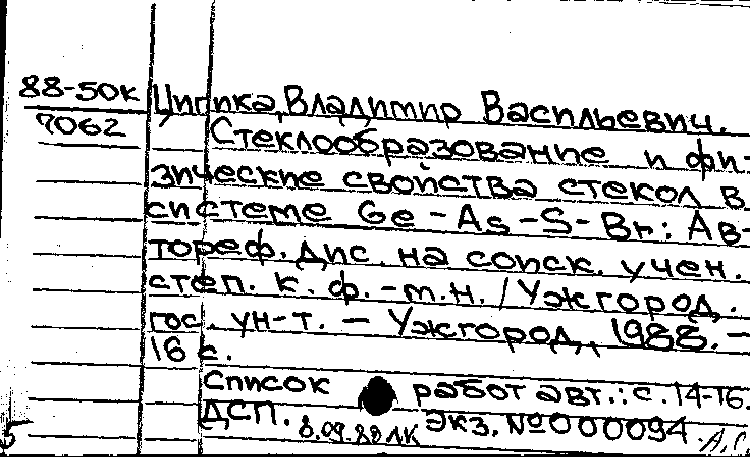 88-50к Цигика, Владимир Васильевич.
7062 Стеклообразование и фи-
зические свойства стекол в
системе Ge-As-S-Br: Ав-
тореф. дис. на соиск. учен.
степ. к. ф.-м.н. / Ужгород.
гос. ун-т. - Ужгород, 1988. -
16 с.
Список работ авт.: с. 14-16.
ДСП. Экз. №000094.
8.09.88 ЛК А.С.
5